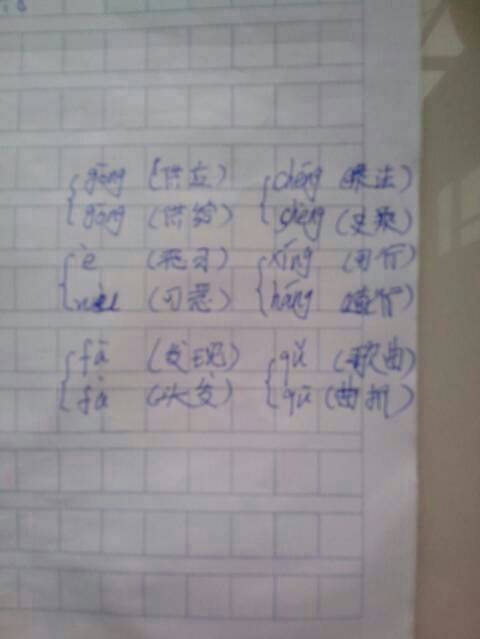 gōng (供应) chéng (乘法)
gōng (供给) shèng (史乘)
è (恶习) xíng (可行)
wù (可恶) háng
fā (发现) qǔ (歌曲)
fà (头发) qū (曲折)